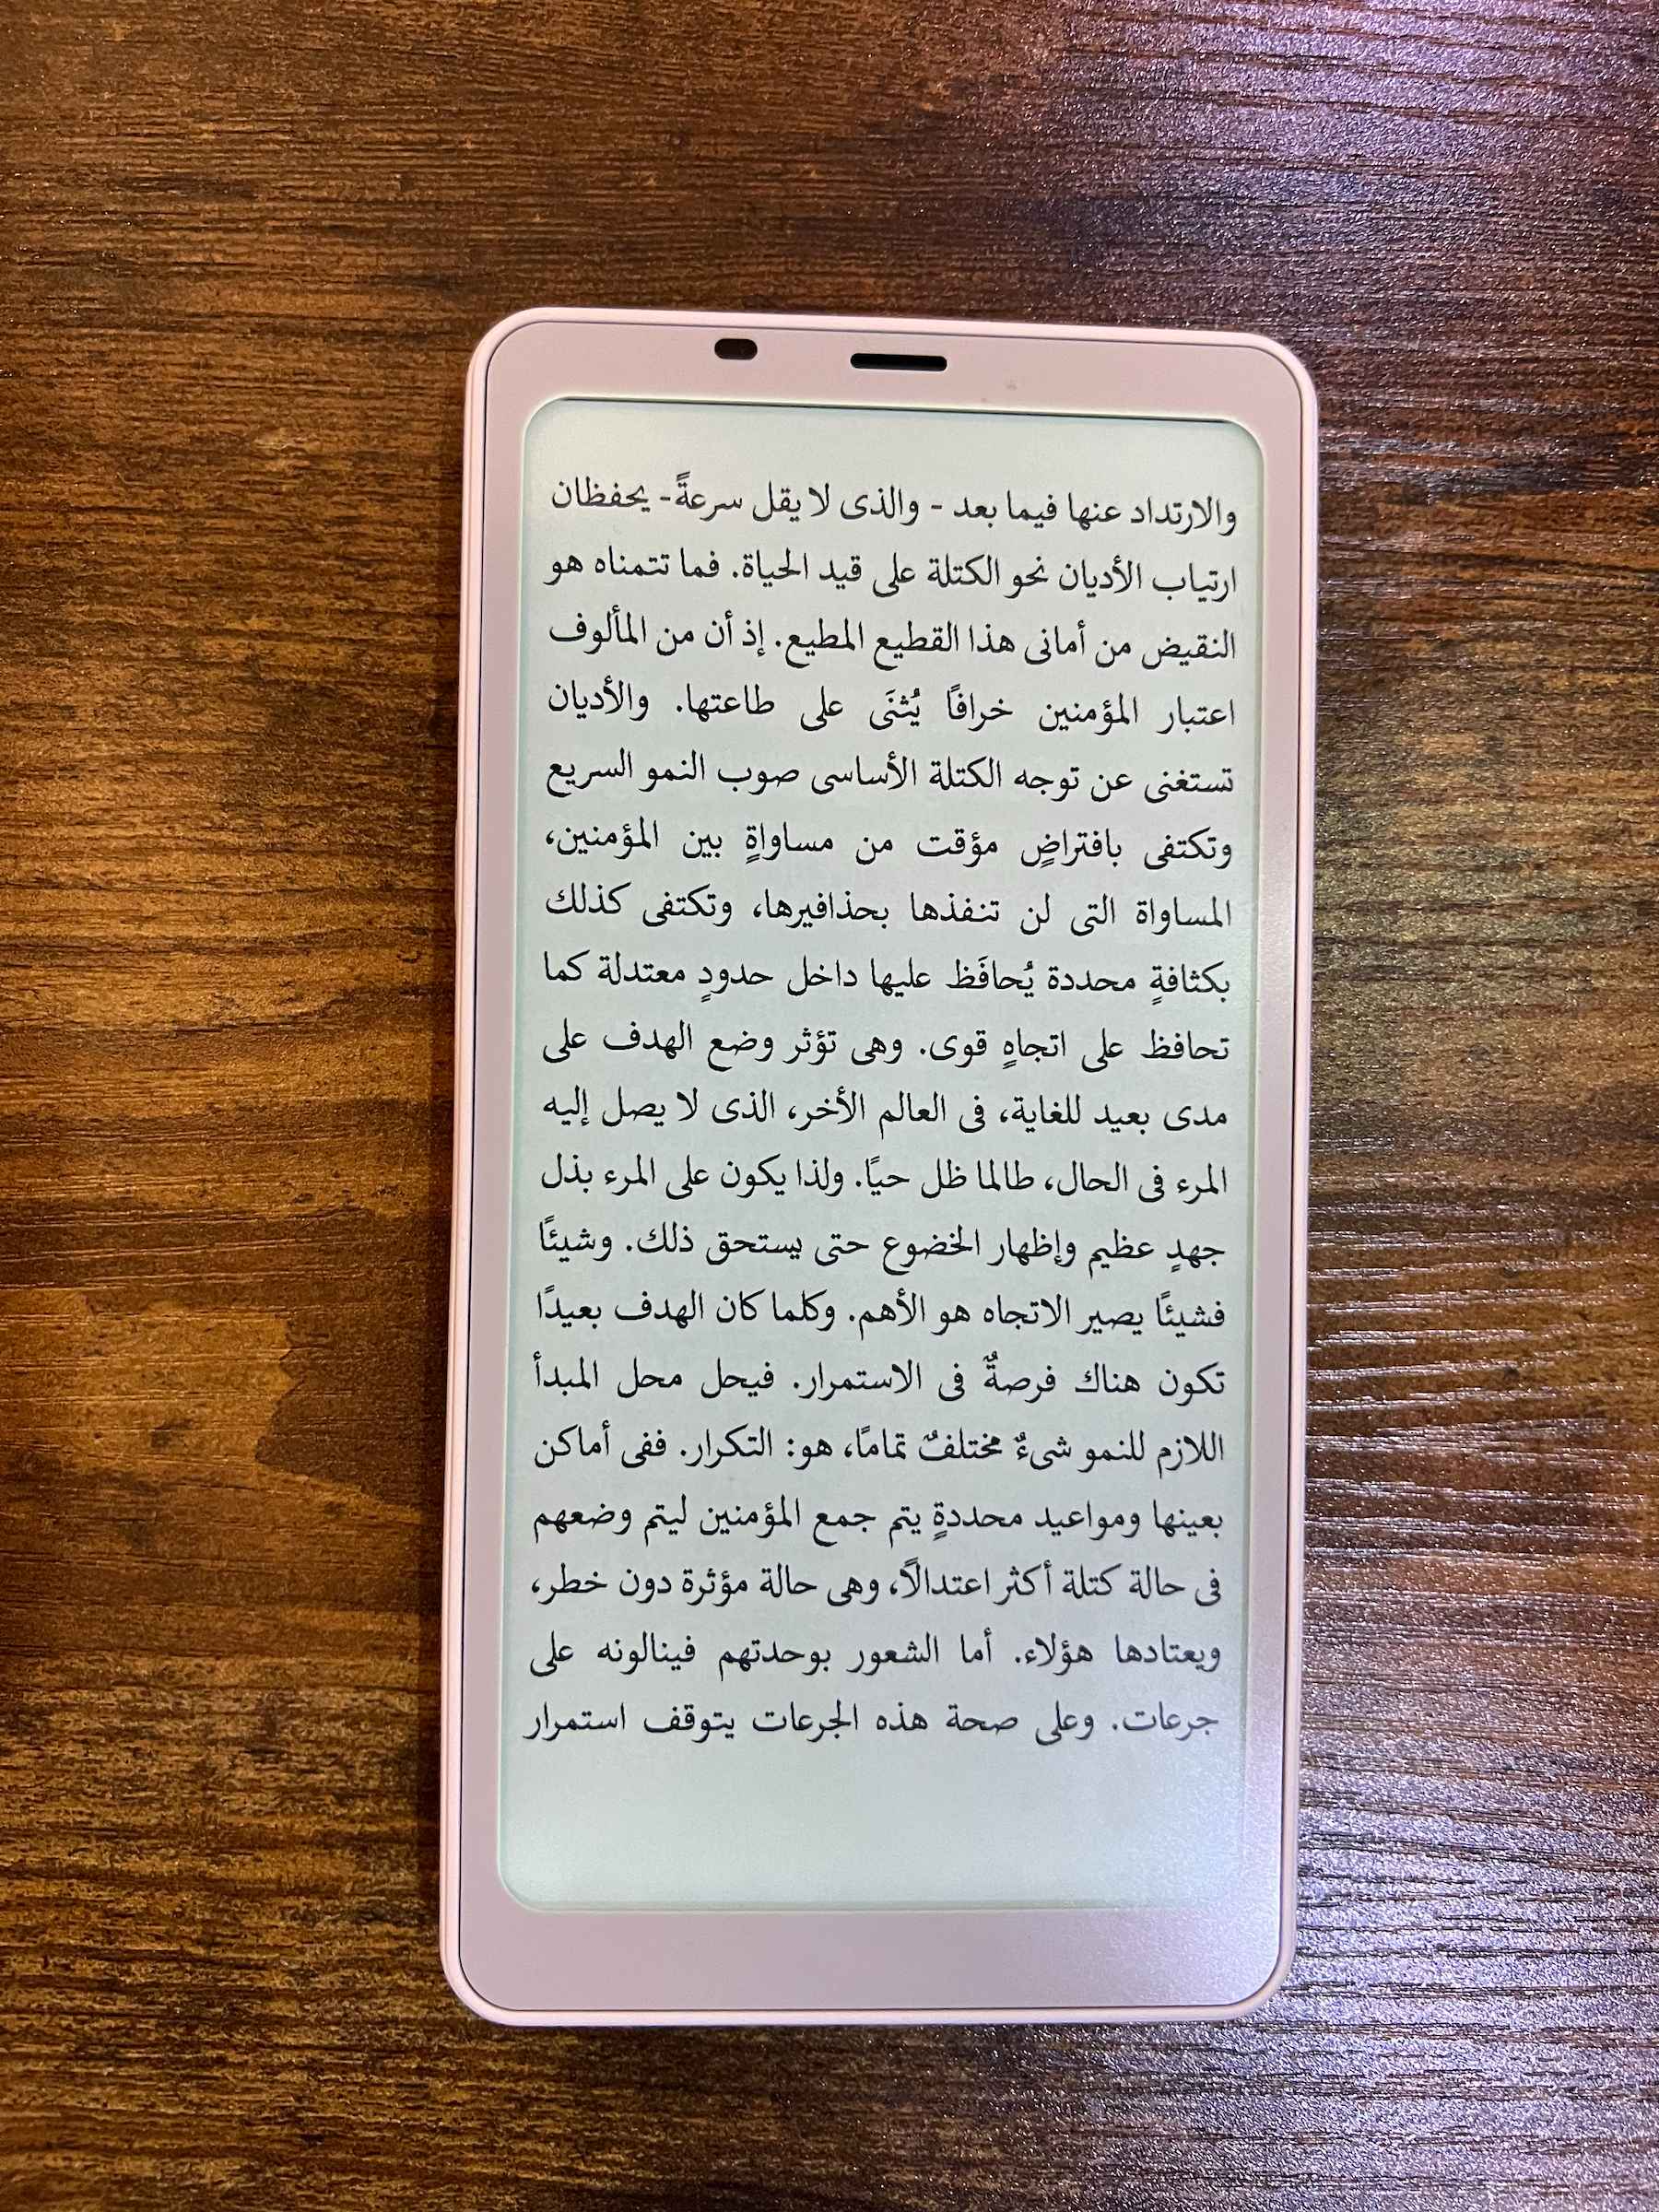 والارتداد عنها فيما بعد - والذى لا يقل سرعةً- يحفظان
ارتياب الأديان نحو الكتلة على قيد الحياة. فما تتمناه هو
النقيض من أمانى هذا القطيع المطيع. إذ أن من المألوف
اعتبار المؤمنين خرافًا يُثنَى على طاعتها. والأديان
تستغنى عن توجه الكتلة الأساسى صوب النمو السريع
وتكتفى بافتراضٍ مؤقت من مساواةٍ بين المؤمنين،
المساواة التى لن تنفذها بحذافيرها، وتكتفى كذلك
بكثافةٍ محددة يُحافَظ عليها داخل حدودٍ معتدلة كما
تحافظ على اتجاهٍ قوى. وهى تؤثر وضع الهدف على
مدى بعيد للغاية، فى العالم الأخر، الذى لا يصل إليه
المرء فى الحال، طالما ظل حيًا. ولذا يكون على المرء بذل
جهدٍ عظيم وإظهار الخضوع حتى يستحق ذلك. وشيئًا
فشيئًا يصير الاتجاه هو الأهم. وكلما كان الهدف بعيدًا
تكون هناك فرصةٌ فى الاستمرار. فيحل محل المبدأ
اللازم للنمو شىءٌ مختلفٌ تمامًا، هو: التكرار. ففى أماكن
بعينها ومواعيد محددةٍ يتم جمع المؤمنين ليتم وضعهم
فى حالة كتلة أكثر اعتدالًا، وهى حالة مؤثرة دون خطر،
ويعتادها هؤلاء. أما الشعور بوحدتهم فينالونه على
جرعات. وعلى صحة هذه الجرعات يتوقف استمرار